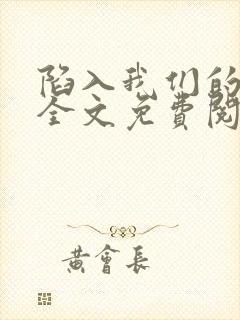 陷入我们的
全文免费阅
黄會長